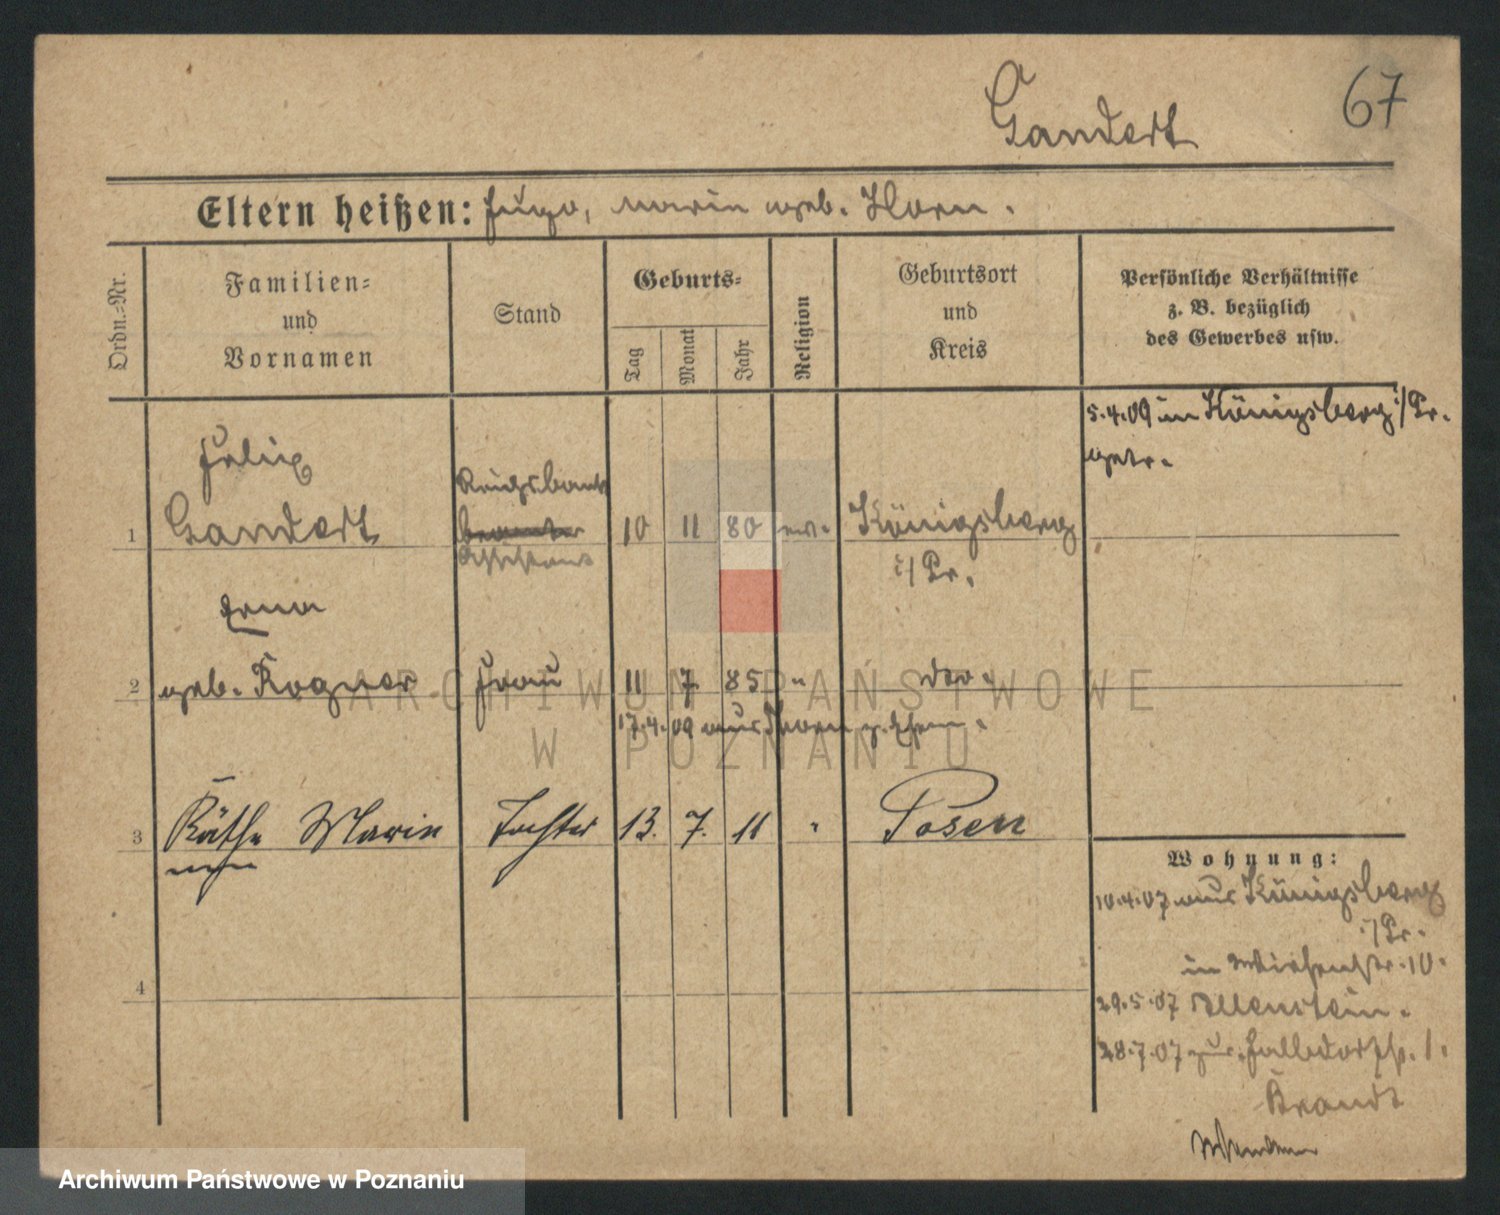 67
Gandert
Eltern heißen: Hugo, Marie geb. Horn.
Ordn.-Nr.
Familien-
und
Vornamen
Stand
Geburts-
Tag
Monat
Jahr
Religion
Geburtsort
und
Kreis
Persönliche Verhältnisse
z. B. bezüglich
des Gewerbes usw.
5.4.09 in Königsberg i/Pr.
getr.
Felix
Reichsbank
1 Gandert 10 11 80 ev. Königsberg
Assistent
i/Pr.
Erna
2 geb. Rogner Frau 11 7. 85 " dto.
17.4.09 aus Thorn z. Ehem.
3 Käthe Marie Tochter 13. 7. 11 " Posen
Wohnung:
10.4.07 aus Königsberg
i/Pr.
in 10.
4
29.5.07 Allenstein.
28.7.07 zur. 1.
Brandt
Wenden
ARCHIWUM PAŃSTWOWE
W POZNANIU
Archiwum Państwowe w Poznaniu